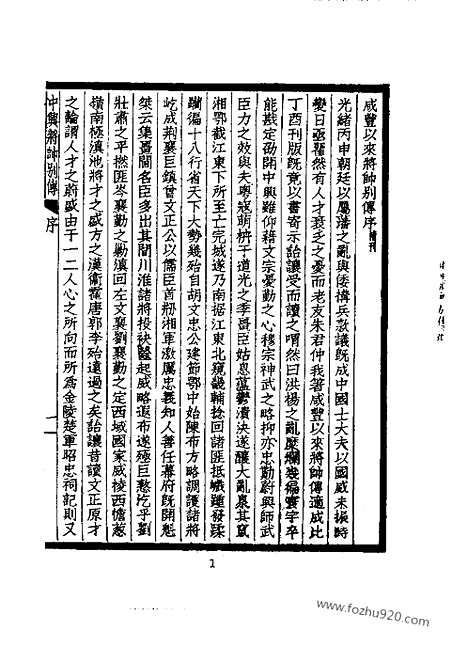 咸豐以來將帥別傳序 補刊
光緒丙申朝廷以屬藩之亂與倭搆兵款議既成中國士大夫以國威未振時
變日亟瞿然有人才衰乏之憂而老友朱君仲我箸咸豐以來將帥傳適成比
丁酉刊版既竟以書寄示詒讓受而讀之喟然曰洪楊之亂糜爛幾徧寰宇卒
能戡定劭開中興雖仰藉文宗憂勤之心穆宗神武之略抑亦忠勤蔚興師武
臣力之效與夫粵寇萌枿于道光之季畺臣姑息薀鬱潰決遂釀大亂㬥其竄
湘鄂截江東下所至亡完城遂乃南据江東北窺畿輔捻回諸匪抵巇踵發蹂
躪徧十八行省天下大勢幾殆自胡文忠公建節鄂中始陳布方略調護諸將
屹成荆襄巨鎮曾文正公以儒臣首剏湘軍激厲忠義知人善任幕府既開魁
桀云集畺閫名臣多出其閒川淮諸將投袂繄起威略遐布遂殛巨憝汔乎劉
壯肅之平撚匪岑襄勤之勦滇回左文襄劉襄勤之定西域國家威棱西憺蔥
嶺南極滇池將才之盛方之漢衞霍唐郭李殆遠過之矣詒讓昔讀文正原才
之論謂人才之蔚盛由于一二人心之所向而所爲金陵楚軍昭忠祠記則又
中興將帥別傳 序 一
1
www.fozhu920.com